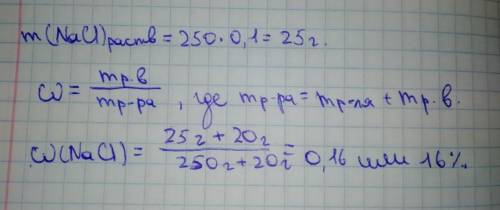 m(NaCl)раств = 250 · 0,1 = 25 г.
ω = mр.в / mр-ра , где mр-ра = mр-ля + mр.в.
ω(NaCl) = 25г + 20г / 250г + 20г = 0,16 или 16%.